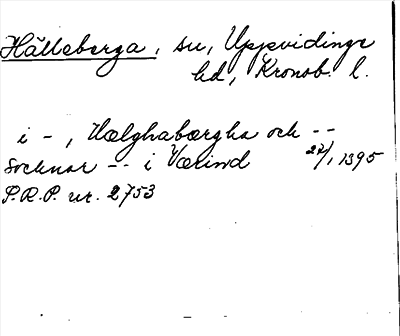 Hälleberga, sn, Uppvidinge
hd, Kronob. l.
i -, Hælghabærgha och --
Socknar -- i Værind 27/1 1395
S.R.P. nr. 2753